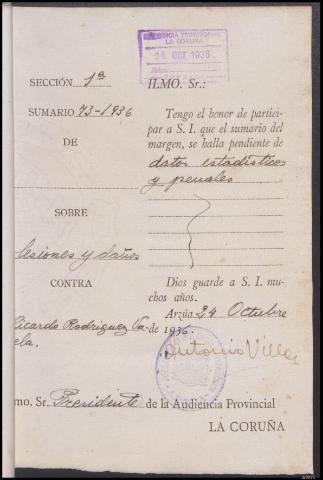 AUDIENCIA TERRITORIAL
LA CORUÑA
26 OCT. 1936
SECCIÓN 1ª
ILMO. Sr.:
SUMARIO 73-1936
DE
SOBRE
lesiones y daños
CONTRA
Ricardo Rodriguez Va-
ela.
Tengo el honor de partici-
par a S. I. que el sumario del
margen, se halla pendiente de
datos estadisticos
y penales
Dios guarde a S. I. mu-
chos años.
Arzúa 24 Octubre
de 1936.
Antonio Villa
mo. Sr. Presidente de la Audiencia Provincial
LA CORUÑA